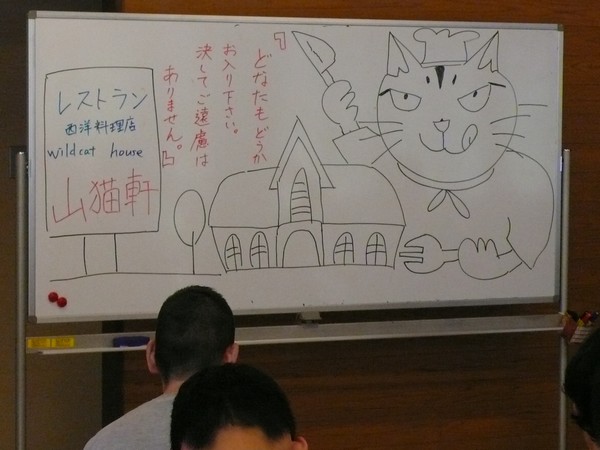 レストラン
西洋料理店
wildcat house
山猫軒
「どなたもどうか
お入り下さい。
決してご遠慮は
ありません。」